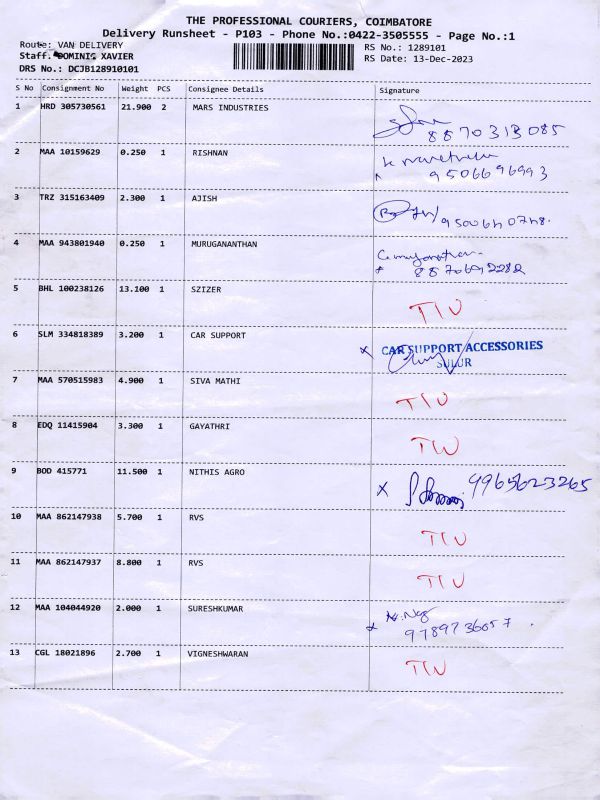 THE PROFESSIONAL COURIERS, COIMBATORE
Delivery Runsheet - P103 - Phone No.:0422-3505555 - Page No.:1
Route: VAN DELIVERY
RS No.: 1289101
Staff. DOMINIC XAVIER
RS Date: 13-Dec-2023
DRS No.: DCJB128910101
S No Consignment No Weight PCS Consignee Details Signature
1 HRD 305730561 21.900 2 MARS INDUSTRIES
8870313085
2 MAA 10159629 0.250 1 RISHNAN
9506696993
3 TRZ 315163409 2.300 1 AJISH
4 MAA 943801940 0.250 1 MURUGANANTHAN
5 BHL 100238126 13.100 1 SZIZER
6 SLM 334818389 3.200 1 CAR SUPPORT x CAR SUPPORT ACCESSORIES
SULUR
7 MAA 570515983 4.900 1 SIVA MATHI
8 EDQ 11415904 3.300 1 GAYATHRI
9 BOD 415771 11.500 1 NITHIS AGRO x 9965623265
10 MAA 862147938 5.700 1 RVS
11 MAA 862147937 8.800 1 RVS
12 MAA 104044920 2.000 1 SURESHKUMAR
9789736057
13 CGL 18021896 2.700 1 VIGNESHWARAN